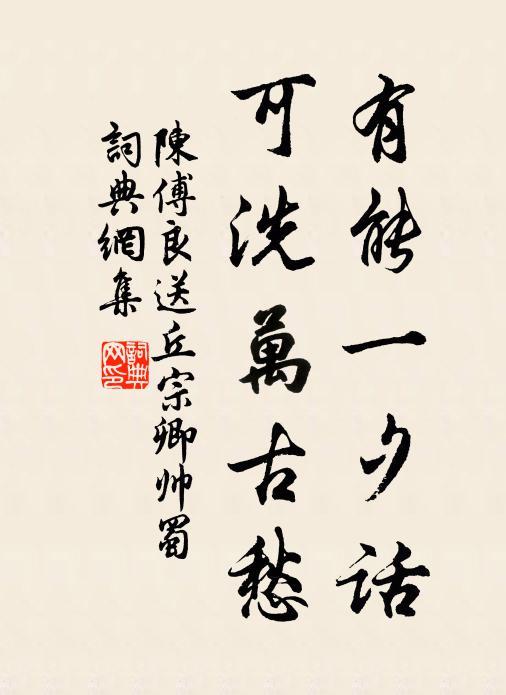 有能一夕话
可洗萬古愁
陳傅良送丘宗卿帅蜀
詞典網集
詞典网印